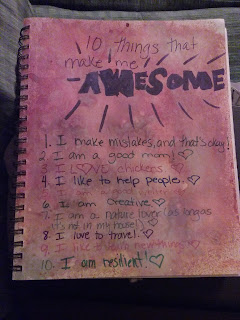 10 things that
make me
AWESOME
1. I make mistakes, and that's okay!
2. I am a good mom! ♡
3. I L♡VE chickens.
4. I like to help people. ♡
6. I am creative ♡
7. I am a nature lover (as long as
it's not in my house!)
8. I love to travel. ♡
9. I like trying new things. ♡
10. I am resilient! ♡